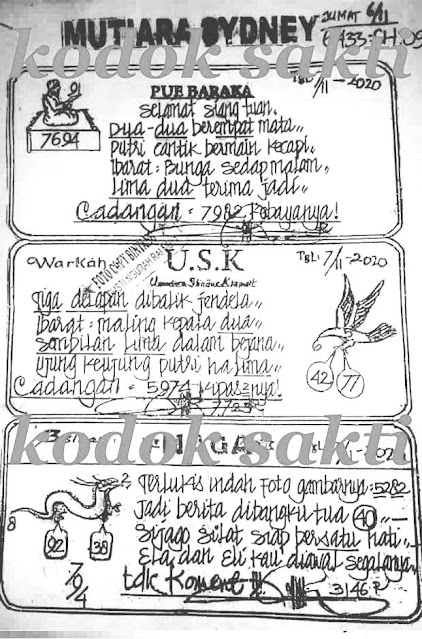 MUTIARA SYDNEY
JUMAT 6/11
6433-CH.05
kodok sakti
PUE BARAKA
TGL 7/11-2020
7694
Selamat siang tuan,,
Dua-dua berempat mata,,
Putri cantik bermain kecapi,
Ibarat: Bunga sedap malam,,
Lima dua terima jadi,,
Cadangan = 7982 Kebayanya!
Warkah
U.S.K
TGL: 7/11-2020
Tiga delapan dibalik jendela,,
Ibarat = maling kepala dua,,
Sembilan lima dalam bejana,,
Ujung keujung putri ha lima,,
Cadangan = 5974 Kipasznya!
7723
42
77
kodok sakti
NAGA
2020
Terlukis indah foto gambarnya: 5282
Jadi berita dibangku tua 40,,—
Sijago silat siap bersatu hati,,
Eta dan Eli kau diawal segalanya,
tdk Koment
3146 P
2
8
92
38
7
9
4